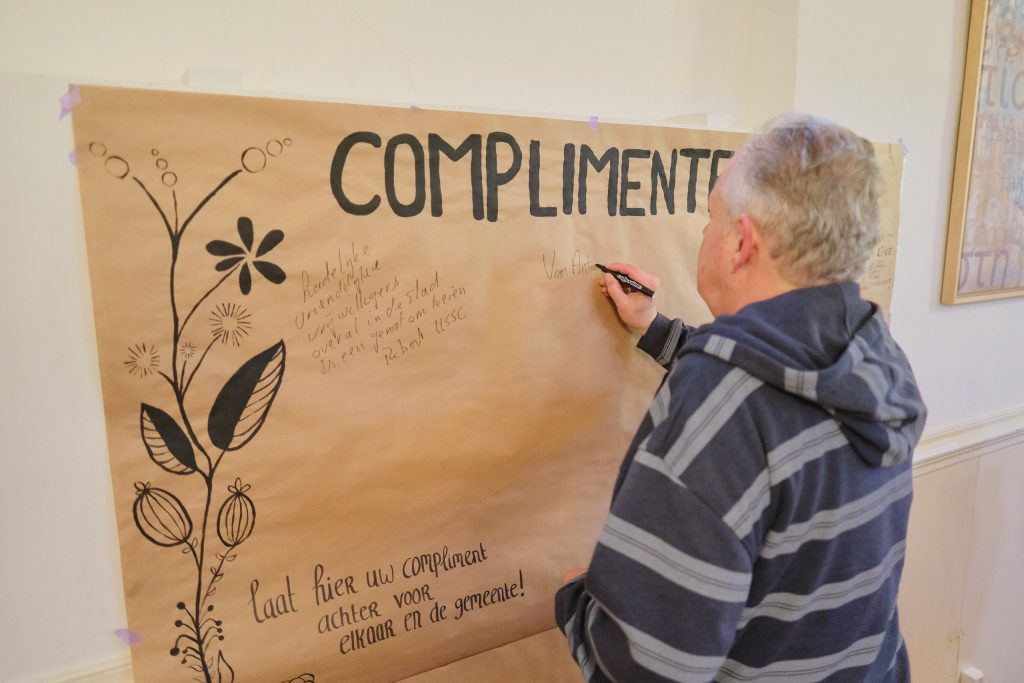 COMPLIMENTE
Vriendelijke
vrijwilligers
overal in de stad
Is een genot om te zien
Robert USSC
Voor
LIVE
laat hier uw compliment
achter voor
elkaar en de gemeente!